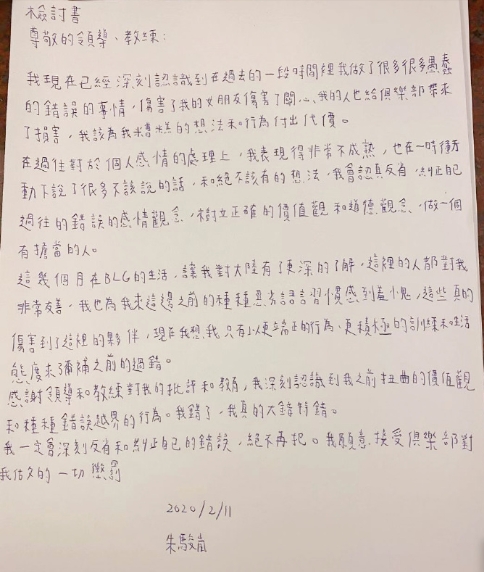 檢討書
尊敬的領導、教練：
我現在已經深刻認識到在過去的一段時間裡我做了很多很多愚蠢
的錯誤的事情，傷害了我的女朋友傷害了關心我的人也給俱樂部帶來
了損害，我該為我糟糕的想法和行為付出代價。
在過往對於個人感情的處理上，我表現得非常不成熟，也在一時衝
動下說了很多不該說的話，和絕不該有的想法，我會認真反省，糾正自己
過往的錯誤的感情觀念，樹立正確的價值觀和道德觀念，做一個
有擔當的人。
這幾個月在BLG的生活，讓我對大陸有了更深的了解，這裡的人都對我
非常友善，我也為我來這邊之前的種種惡劣語言習慣感到羞愧，這些真的
傷害到了這裡的夥伴，現在我想我只有以更端正的行為、更積極的訓練和生活
態度來彌補之前的過錯。
感謝領導和教練對我的批評和教育，我深刻認識到我之前扭曲的價值觀
和種種錯誤越界的行為。我錯了，我真的大錯特錯。
我一定會深刻反省和糾正自己的錯誤，絕不再犯。我願意接受俱樂部對
我做出的一切懲罰
2020/2/11
朱駿嵐